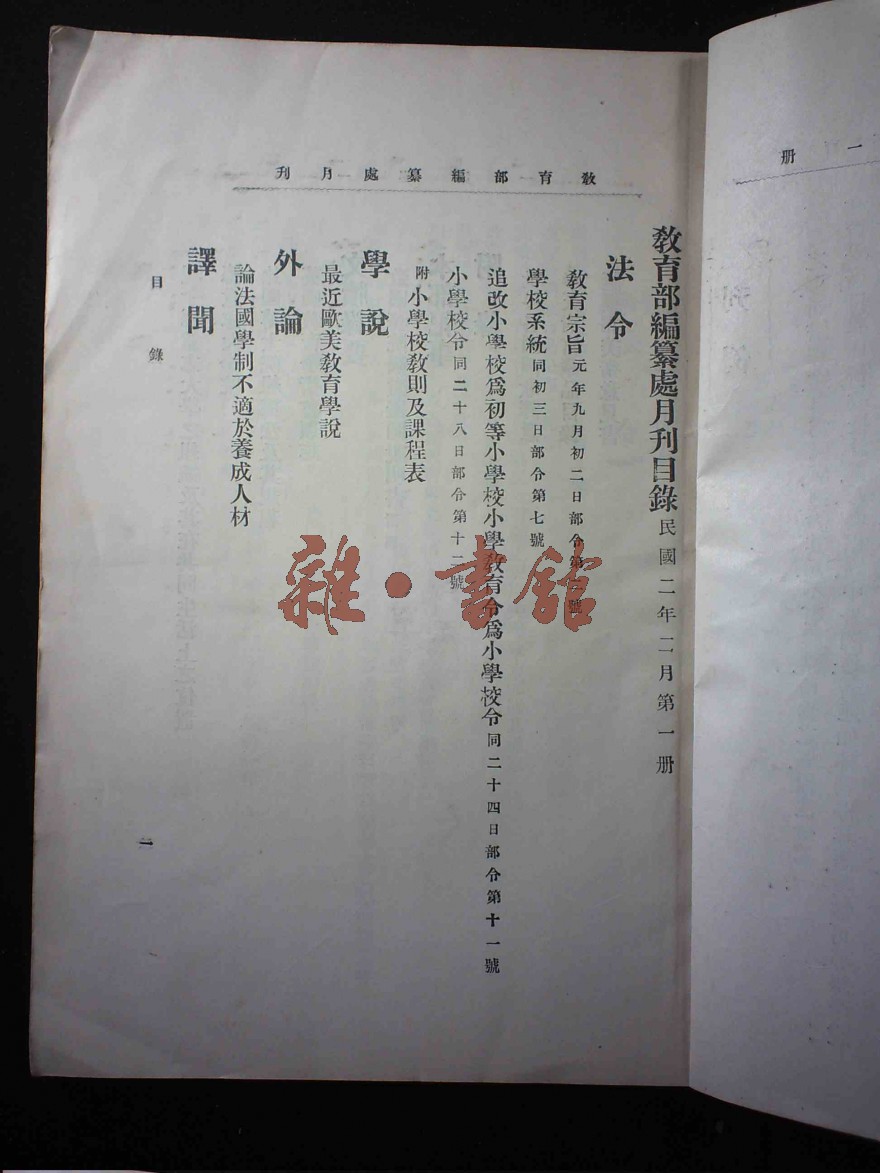 教育部編纂處月刊
一册
教育部編纂處月刊目錄 民國二年二月第一册
法令
教育宗旨 元年九月初二日部令第二號
學校系統 同初三日部令第七號
追改小學校爲初等小學校小學教育令爲小學校令 同二十四日部令第十一號
小學校令 同二十八日部令第十二號
附 小學校教則及課程表
學說
最近歐美教育學說
外論
論法國學制不適於養成人材
譯聞
目錄
一
雜·書館